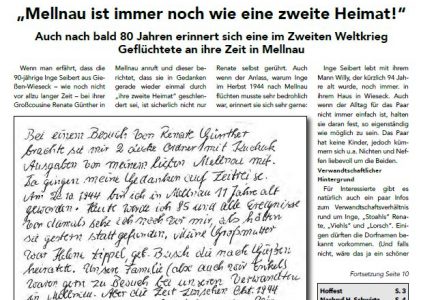 „Mellnau ist immer noch wie eine zweite Heimat!“
Auch nach bald 80 Jahren erinnert sich eine im Zweiten Weltkrieg
Geflüchtete an ihre Zeit in Mellnau
Wenn man erfährt, dass die
90-jährige Inge Seibert aus Gie-
ßen-Wieseck – wie noch nicht
vor allzu langer Zeit – bei ihrer
Großcousine Renate Günther in
Mellnau anruft und dieser be-
richtet, dass sie in Gedanken
gerade wieder einmal durch
„ihre zweite Heimat“ geschlen-
dert sei, ist sicherlich nicht nur
Renate selbst gerührt. Auch
wenn der Anlass, warum Inge
im Herbst 1944 nach Mellnau
flüchten musste sehr bedrohlich
war, erinnert sie sich sehr gerne:
Inge Seibert lebt mit ihrem
Mann Willy, der kürzlich 94 Jah-
re alt wurde, noch immer in
ihrem Haus in Wieseck. Auch
wenn der Alltag für das Paar
nicht immer einfach ist, halten
sie daran fest, so eigenständig
wie möglich zu sein. Das Paar
hat keine Kinder, jedoch küm-
mern sich u.a. Nichten und Nef-
fen liebevoll um die Beiden.
Verwandtschaftlicher
Hintergrund
Für Interessierte gibt es
natürlich auch ein paar Infos
zum Verwandtschaftsverhältnis
rund um Inge, „Stoahls“ Rena-
te, „Viehls“ und „Lorsch“. Einigen
dürften die Dorfnamen be-
kannt vorkommen. (Und falls
nicht, wäre das ja ein schöner
Fortsetzung Seite 10
Hoffest S. 3
Bei einem Besuch von Renate Günther
brachte sie mir 2 dicke Ordner mit
Ausgaben von meinem lieben Mellnau mit.
Da gingen meine Gedanken auf Zeitreise.
Am 22.10 1944 bin ich in Mellnau 11 Jahre alt
geworden. Heute werde ich 85 und alle Ereignisse
von damals sehe ich noch vor mir, als hätten
sie gestern stattgefunden. Meine Großmutter
war Helene geb. Busch die nach Gießen
heiratete. Unsere Familie (also auch wir Enkel)
waren gern zu Besuch bei unseren Verwandten
in Mellnau. Aber die Zeit zwischen Okt. 1944